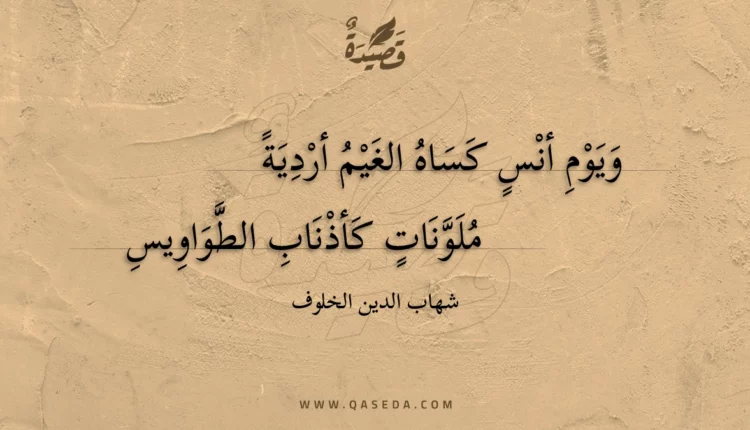 قَصِيْدَةٌ
وَيَوْمِ أنْسٍ كَسَاهُ الغَيْمُ أرْدِيَةً
مُلَوَّنَاتٍ كَأذْنَابِ الطَّوَاوِيسِ
شهاب الدين الخلوف
WWW.QASEDA.COM